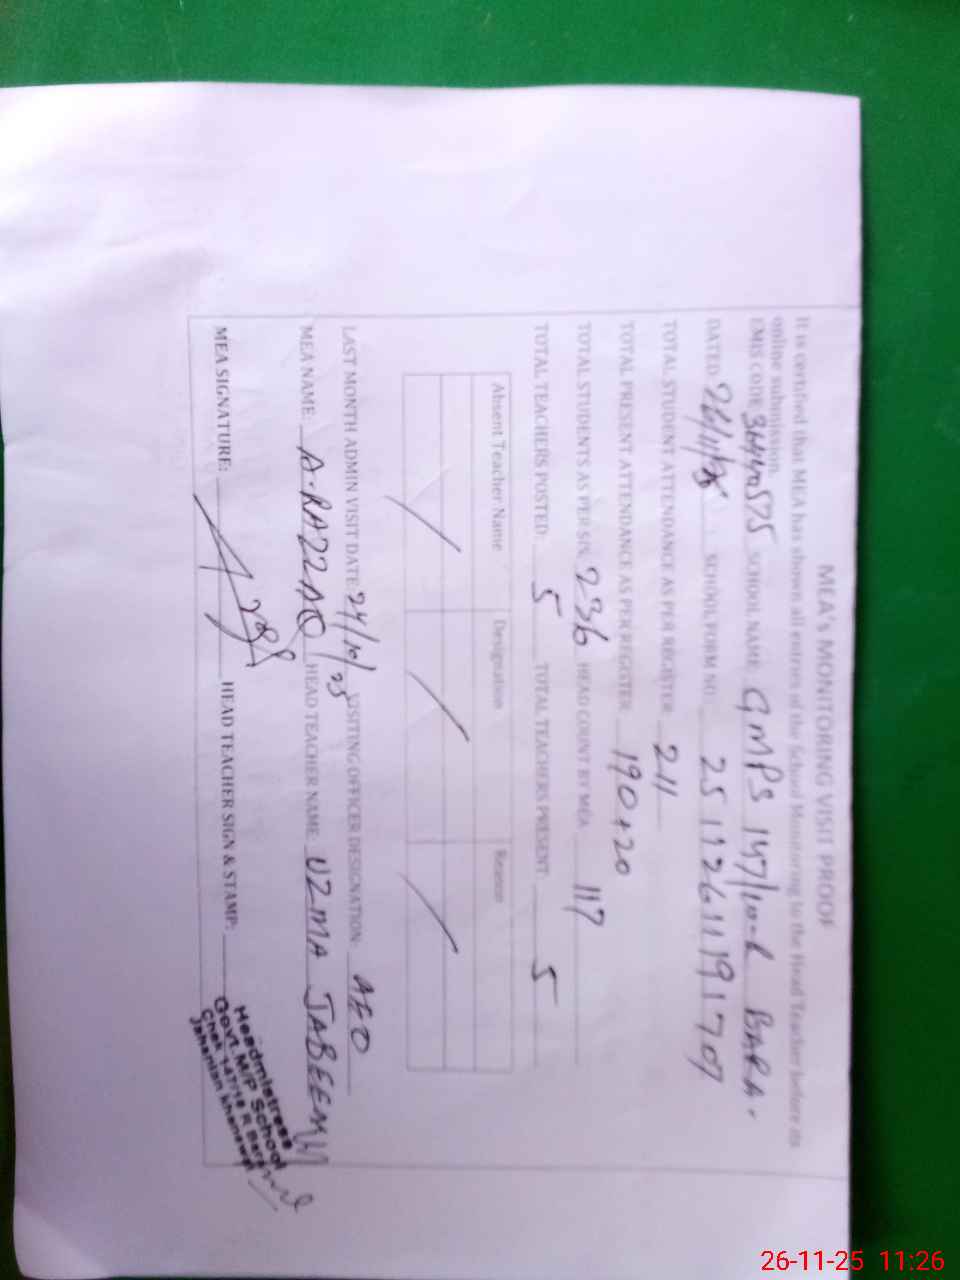 MEA's MONITORING VISIT PROOF
It is certified that MEA has shown all entries of the School Monitoring to the Head Teacher before its
online submission.
EMIS CODE SCHOOL NAME GMPS 147/10-R BARA.
DATED 26/11/25 SCHOOL FORM NO: 2511261119 1707
TOTAL STUDENT ATTENDANCE AS PER REGISTER 211
TOTAL PRESENT ATTENDANCE AS PER REGISTER 190+20
TOTAL STUDENTS AS PER SIS: 236 HEAD COUNT BY MEA 117
TOTAL TEACHERS POSTED: 5 TOTAL TEACHERS PRESENT: 5
Absent Teacher Name Designation Reason
LAST MONTH ADMIN VISIT DATE: 24/10/25 VISITING OFFICER DESIGNATION: AEO
MEA NAME: A.RAZZAQ HEAD TEACHER NAME UZMA JABEEN
MEA SIGNATURE: HEAD TEACHER SIGN & STAMP:
Headmistress
Govt. M/P School
Chak 147/10 R Bara
Jahanian Khanewal
26-11-25 11:26